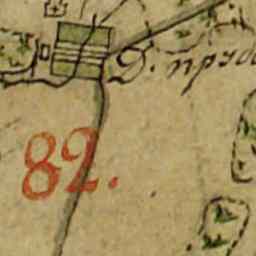 Д. пруд
82.